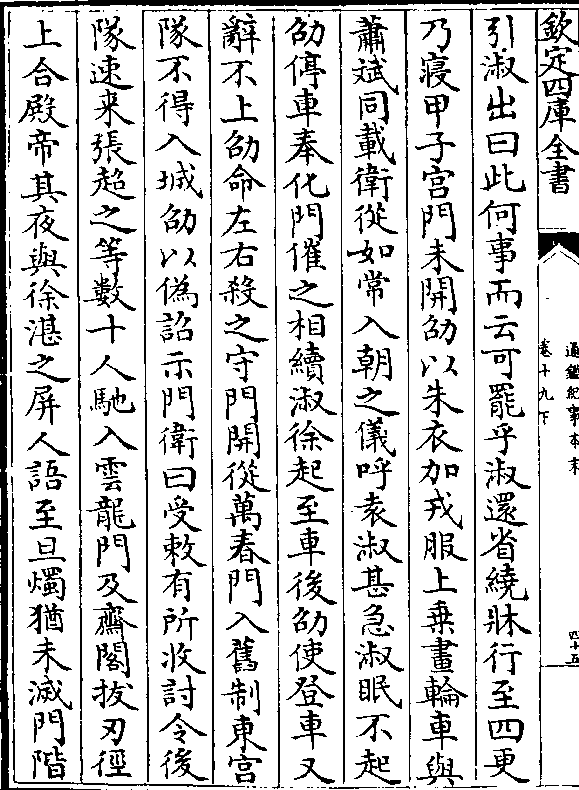 欽定四庫全書
通鑑紀事本末
卷十九下
四十五
引淑出曰此何事而云可罷乎淑還省繞牀行至四更
乃寢甲子宮門未開劭以朱衣加戎服上乗畫輪車與
蕭斌同載衛從如常入朝之儀呼袁淑甚急淑眠不起
劭停車奉化門催之相續淑徐起至車後劭使登車又
辭不上劭命左右殺之守門開從萬春門入舊制東宮
隊不得入城劭以偽詔示門衛曰受敕有所收討令後
隊速来張超之等數十人馳入雲龍門及齋閤拔刃徑
上合殿帝其夜與徐湛之屏人語至旦燭猶未滅門階